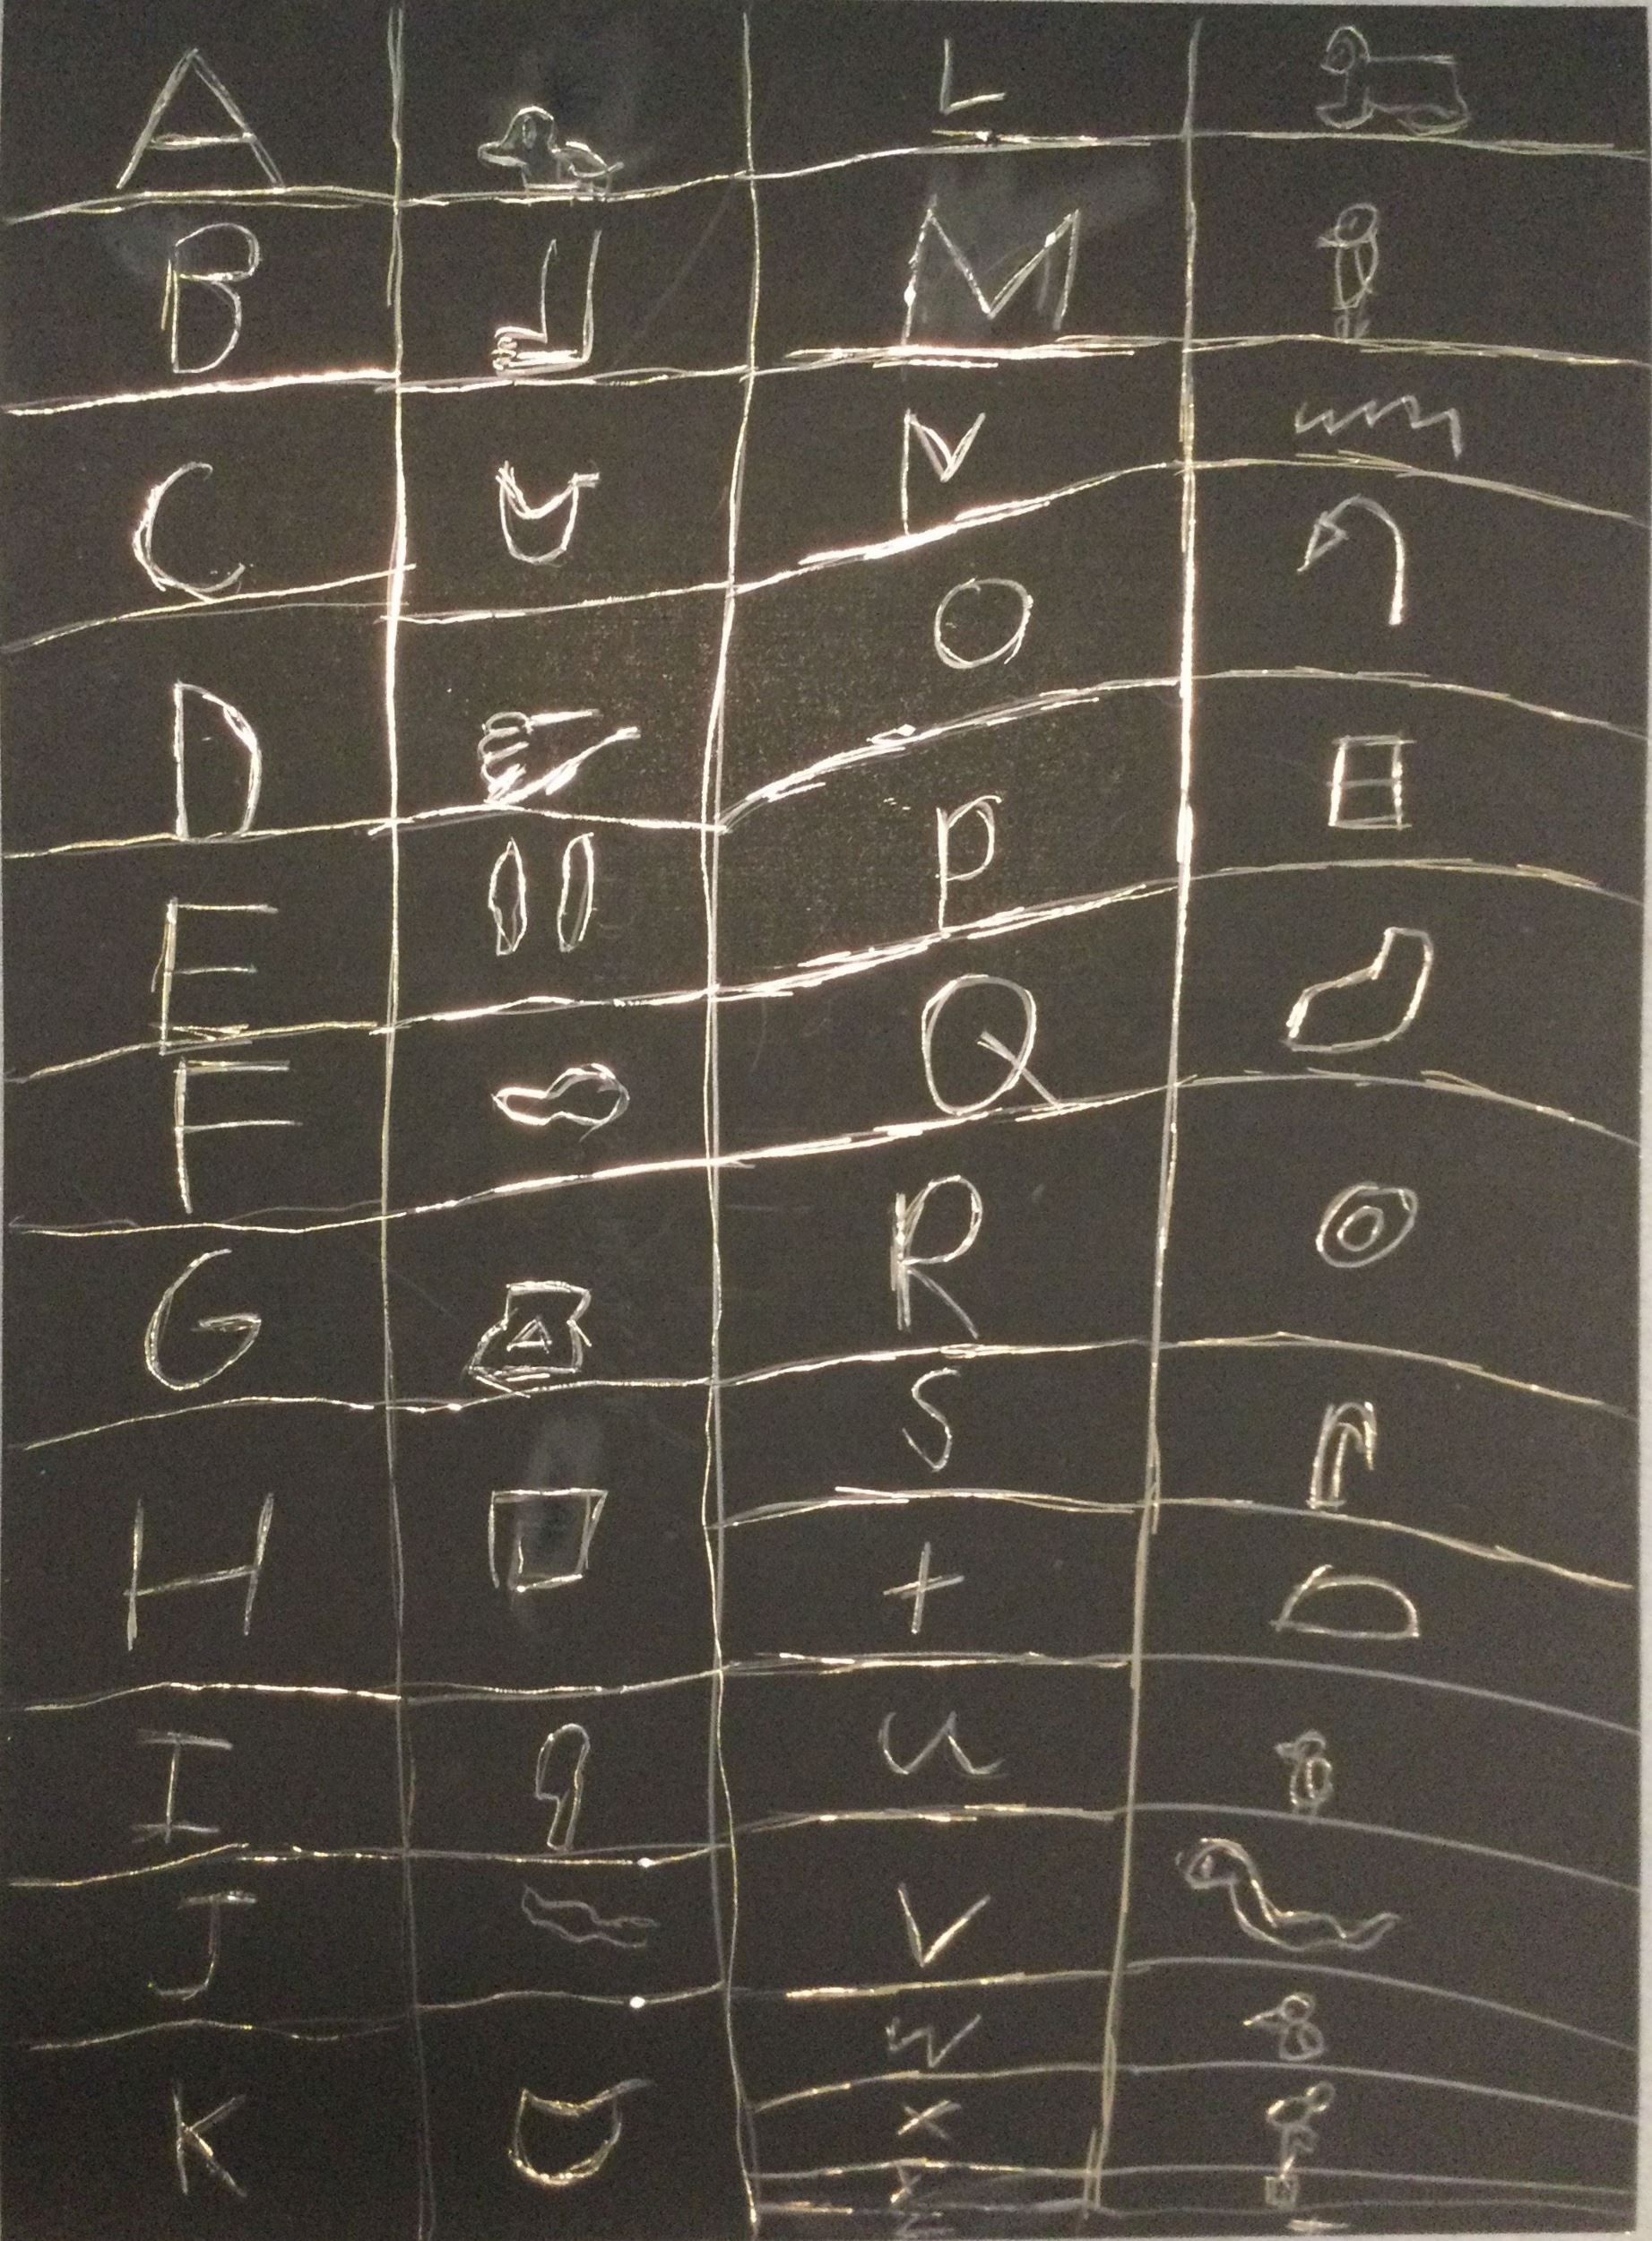 A L
B M
C N
D O
E P
F Q
G R
H S
I t
J u
K V
W
X
Y
Z